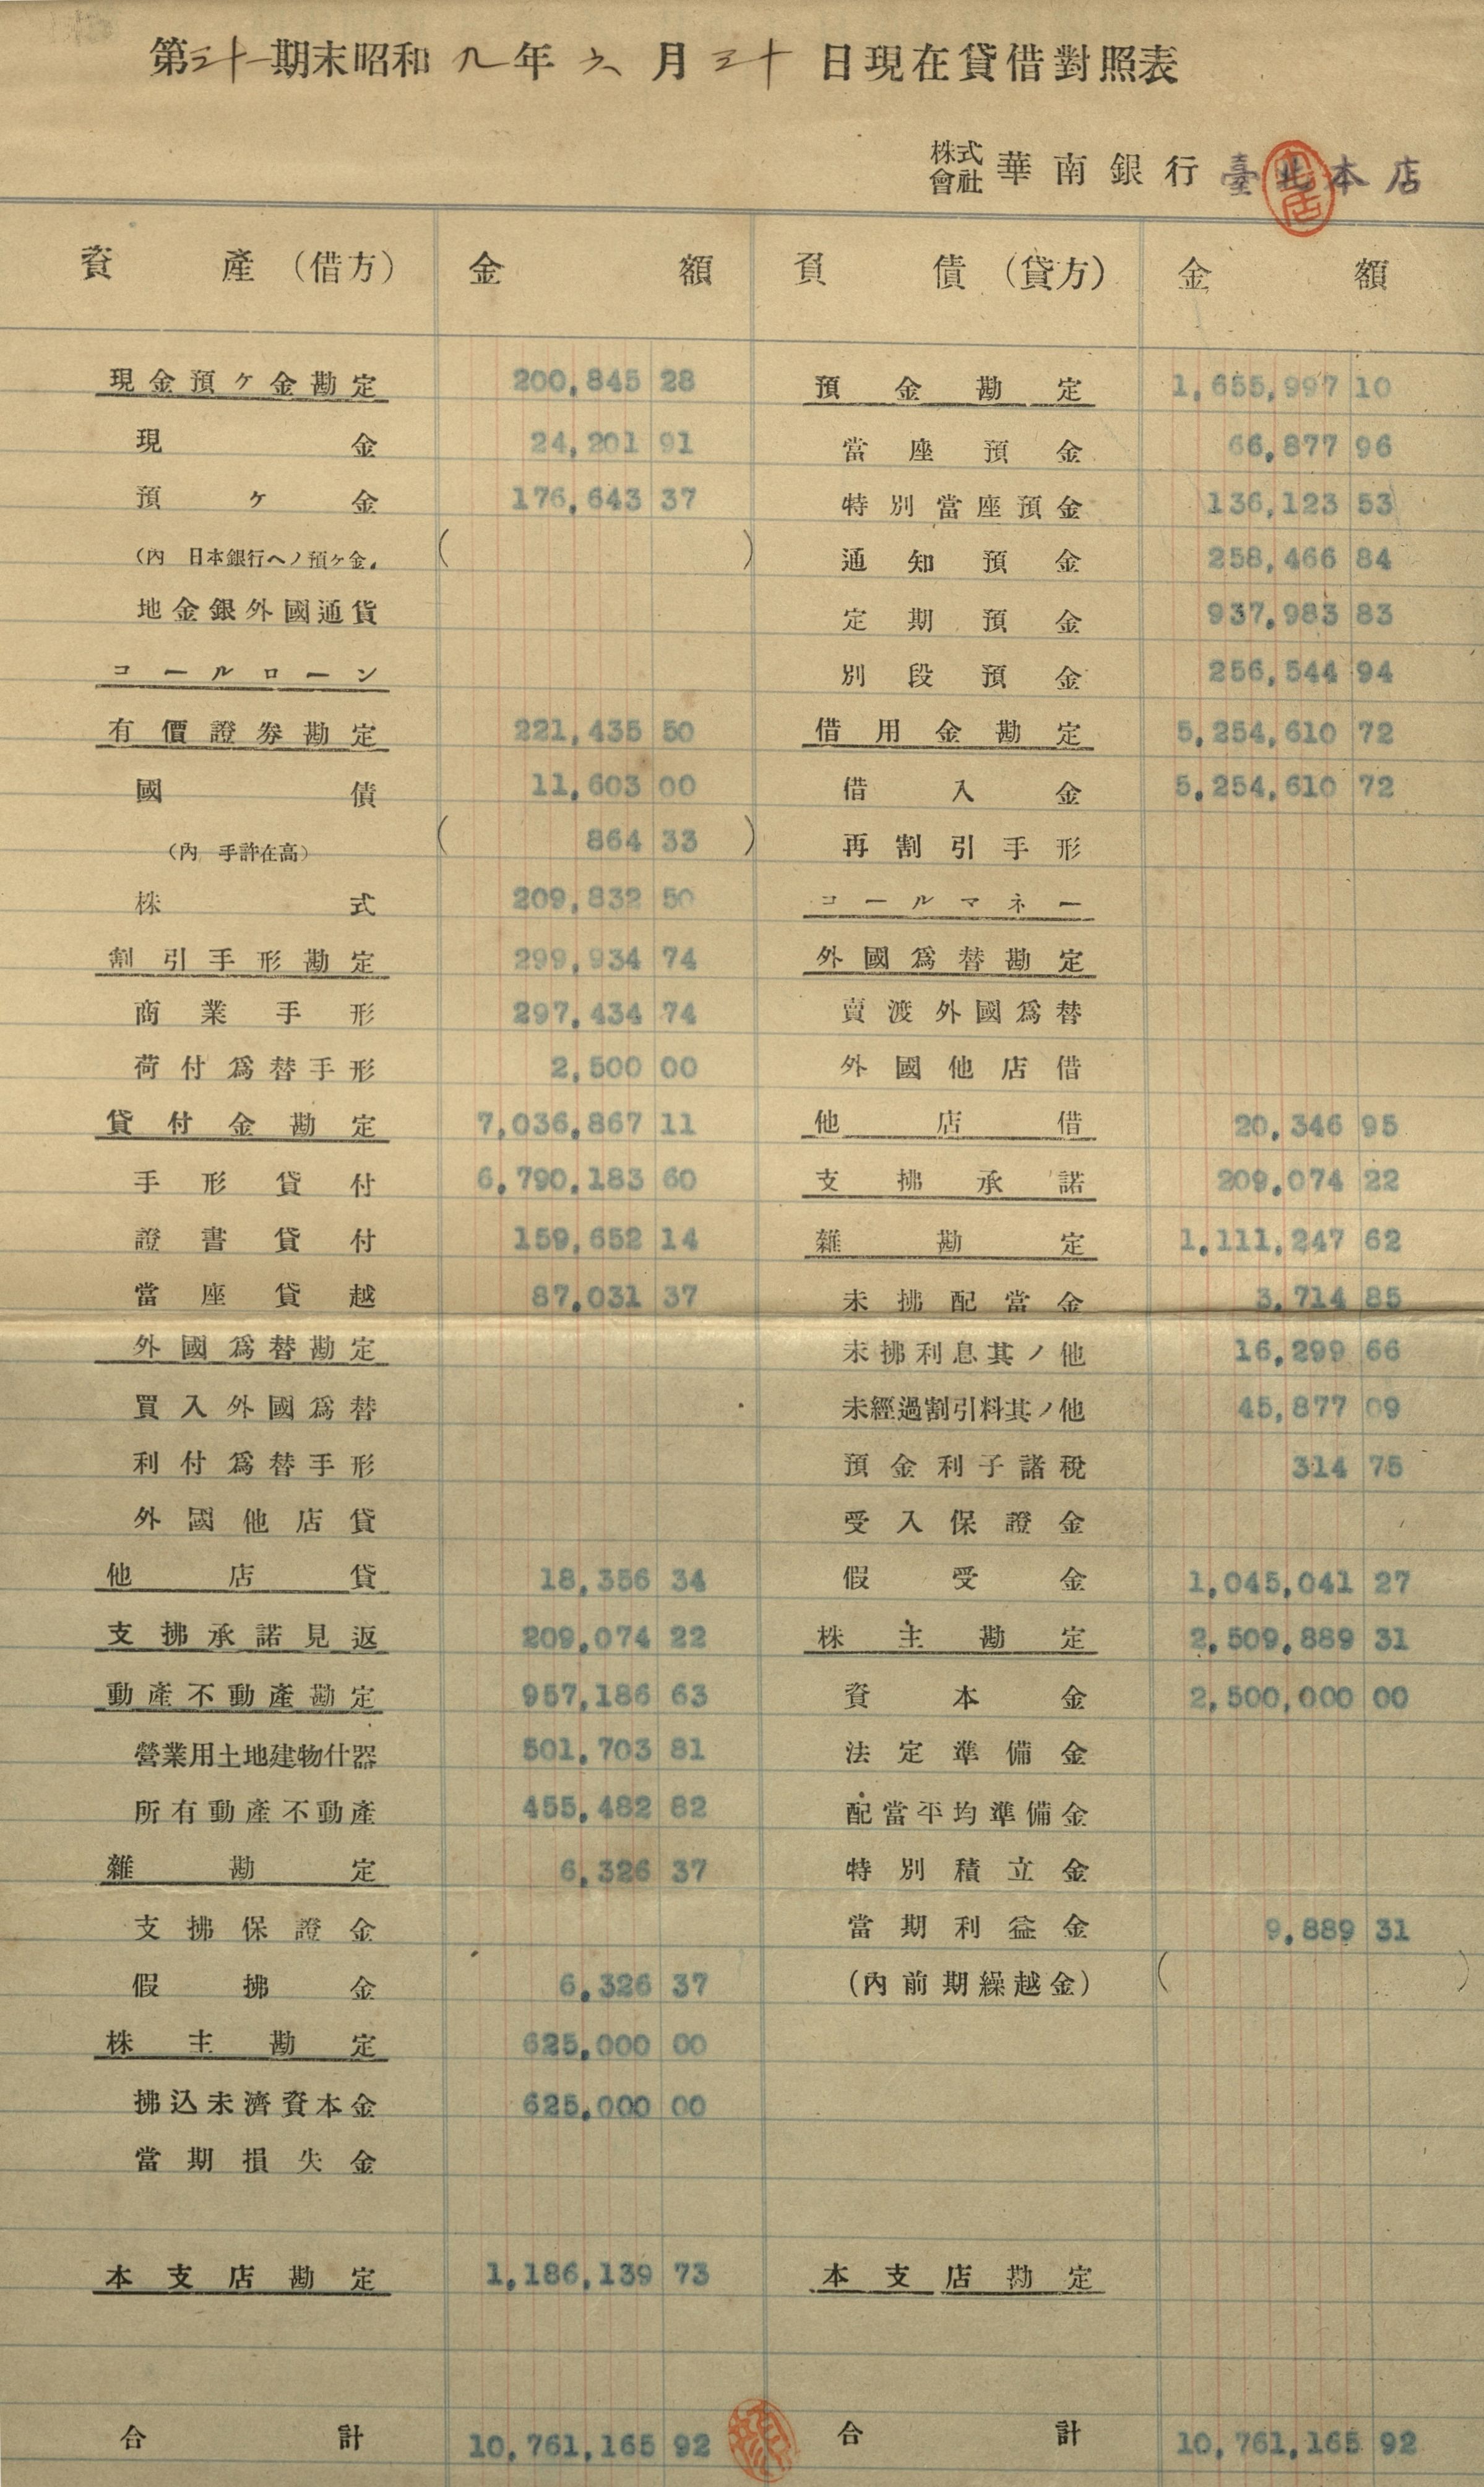 第三十一期末昭和九年六月三十日現在貸借對照表
株式會社 華南銀行 臺北本店
資產（借方） 金額 負債（貸方） 金額
現金預ヶ金勘定 200,845 28 預金勘定 1,655,997 10
現金 24,201 91 當座預金 66,877 96
預ヶ金 176,643 37 特別當座預金 136,123 53
（內 日本銀行ヘノ預ヶ金 ( ) 通知預金 258,466 84
地金銀外國通貨 定期預金 937,983 83
コールローン 別段預金 256,544 94
有價證券勘定 221,435 50 借用金勘定 5,254,610 72
國債 11,603 00 借入金 5,254,610 72
（內 手許在高） ( 864 33 ) 再割引手形
株式 209,832 50 コールマネー
割引手形勘定 299,934 74 外國爲替勘定
商業手形 297,434 74 賣渡外國爲替
荷付爲替手形 2,500 00 外國他店借
貸付金勘定 7,036,867 11 他店借 20,346 95
手形貸付 6,790,183 60 支拂承諾 209,074 22
證書貸付 159,652 14 雜勘定 1,111,247 62
當座貸越 87,031 37 未拂配當金 3,714 85
外國爲替勘定 未拂利息其ノ他 16,299 66
買入外國爲替 未經過割引料其ノ他 45,877 09
利付爲替手形 預金利子諸稅 314 75
外國他店貸 受入保證金
他店貸 18,356 34 假受金 1,045,041 27
支拂承諾見返 209,074 22 株主勘定 2,509,889 31
動產不動產勘定 957,186 63 資本金 2,500,000 00
營業用土地建物什器 501,703 81 法定準備金
所有動產不動產 455,482 82 配當平均準備金
雜勘定 6,326 37 特別積立金
支拂保證金 當期利益金 9,889 31
假拂金 6,326 37 （內前期繰越金） ( )
株主勘定 625,000 00
拂込未濟資本金 625,000 00
當期損失金
本支店勘定 1,186,139 73 本支店勘定
合計 10,761,165 92 合計 10,761,165 92